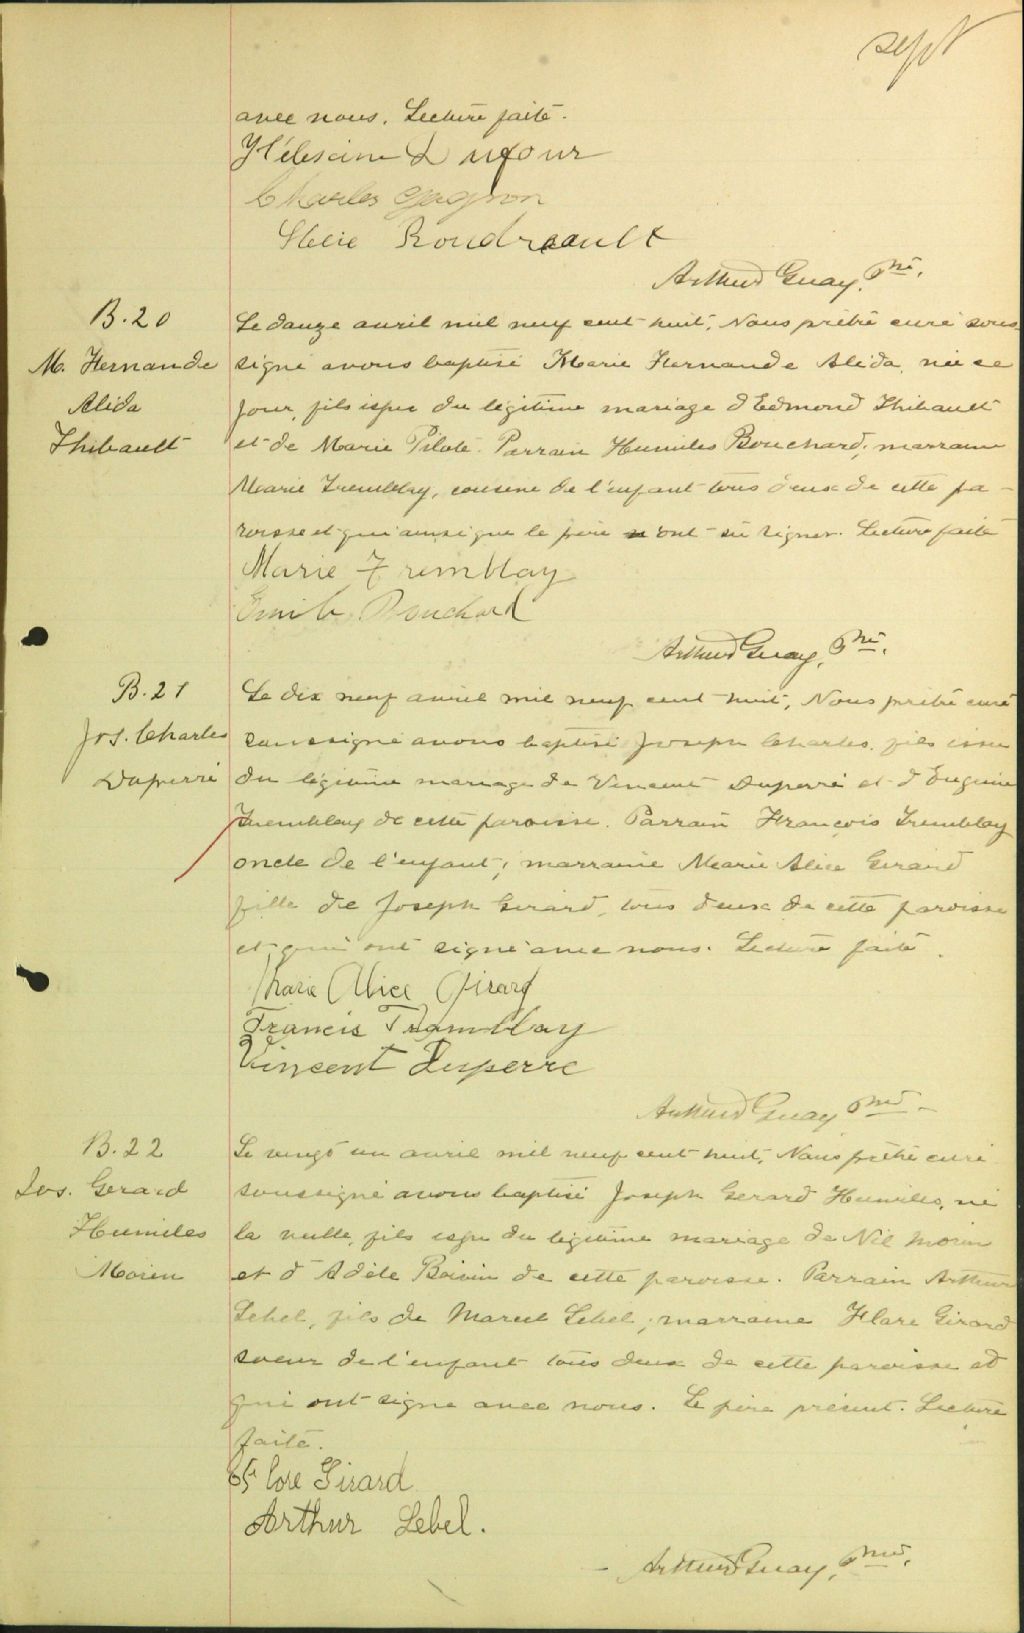 sept
avec nous. Lecture faite.
Dufour
Charles Gagnon
Boudreault
Arthur Guay, Ptre.
B.20
M. Hernande
Alida
Thibault
Le douze avril mil neuf cent huit, Nous prêtre curé sous
signé avons baptisé Marie Hernande Alida, née ce
jour, fils issu du légitime mariage d'Edmond Thibault
et de Marie Pilote. Parrain Humiles Bouchard, marraine
Marie Tremblay, cousine de l'enfant tous deux de cette pa-
roisse et qui ainsi que le père ont su signer. Lecture faite
Marie Tremblay
Bouchard
Arthur Guay, Ptre.
B.21
Jos. Charles
Duperré
Le dix neuf avril mil neuf cent huit, Nous prêtre curé
soussigné avons baptisé Joseph Charles, fils issu
du légitime mariage de Vincent Duperré et d'Eugénie
Tremblay de cette paroisse. Parrain François Tremblay
oncle de l'enfant; marraine Marie Alice Gerard
fille de Joseph Gerard, tous deux de cette paroisse
et qui ont signé avec nous. Lecture faite.
Marie Alice Girard
Francis Tramblay
Vincent Duperre
Arthur Guay Ptre
B.22
Jos. Gerard
Humiles
Morin
Le vingt un avril mil neuf cent huit, Nous prêtre curé
soussigné avons baptisé Joseph Gerard Humiles, né
la veille, fils issu du légitime mariage de Nil Morin
et d'Adèle Boivin de cette paroisse. Parrain Arthur
Lebel, fils de Marcel Lebel; marraine Flore Girard
soeur de l'enfant tous deux de cette paroisse et
qui ont signé avec nous. Le père présent. Lecture
faite.
Girard
Arthur Lebel.
Arthur Guay, Ptre.